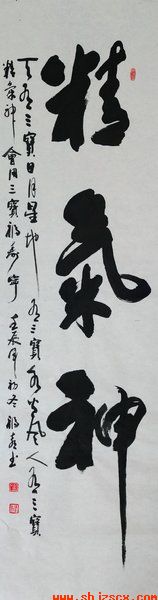 精氣神
天有三寶日月星地有三寶水火風人有三寶
精氣神會用三寶福壽寧壬辰年初冬
www.shjzscx.com